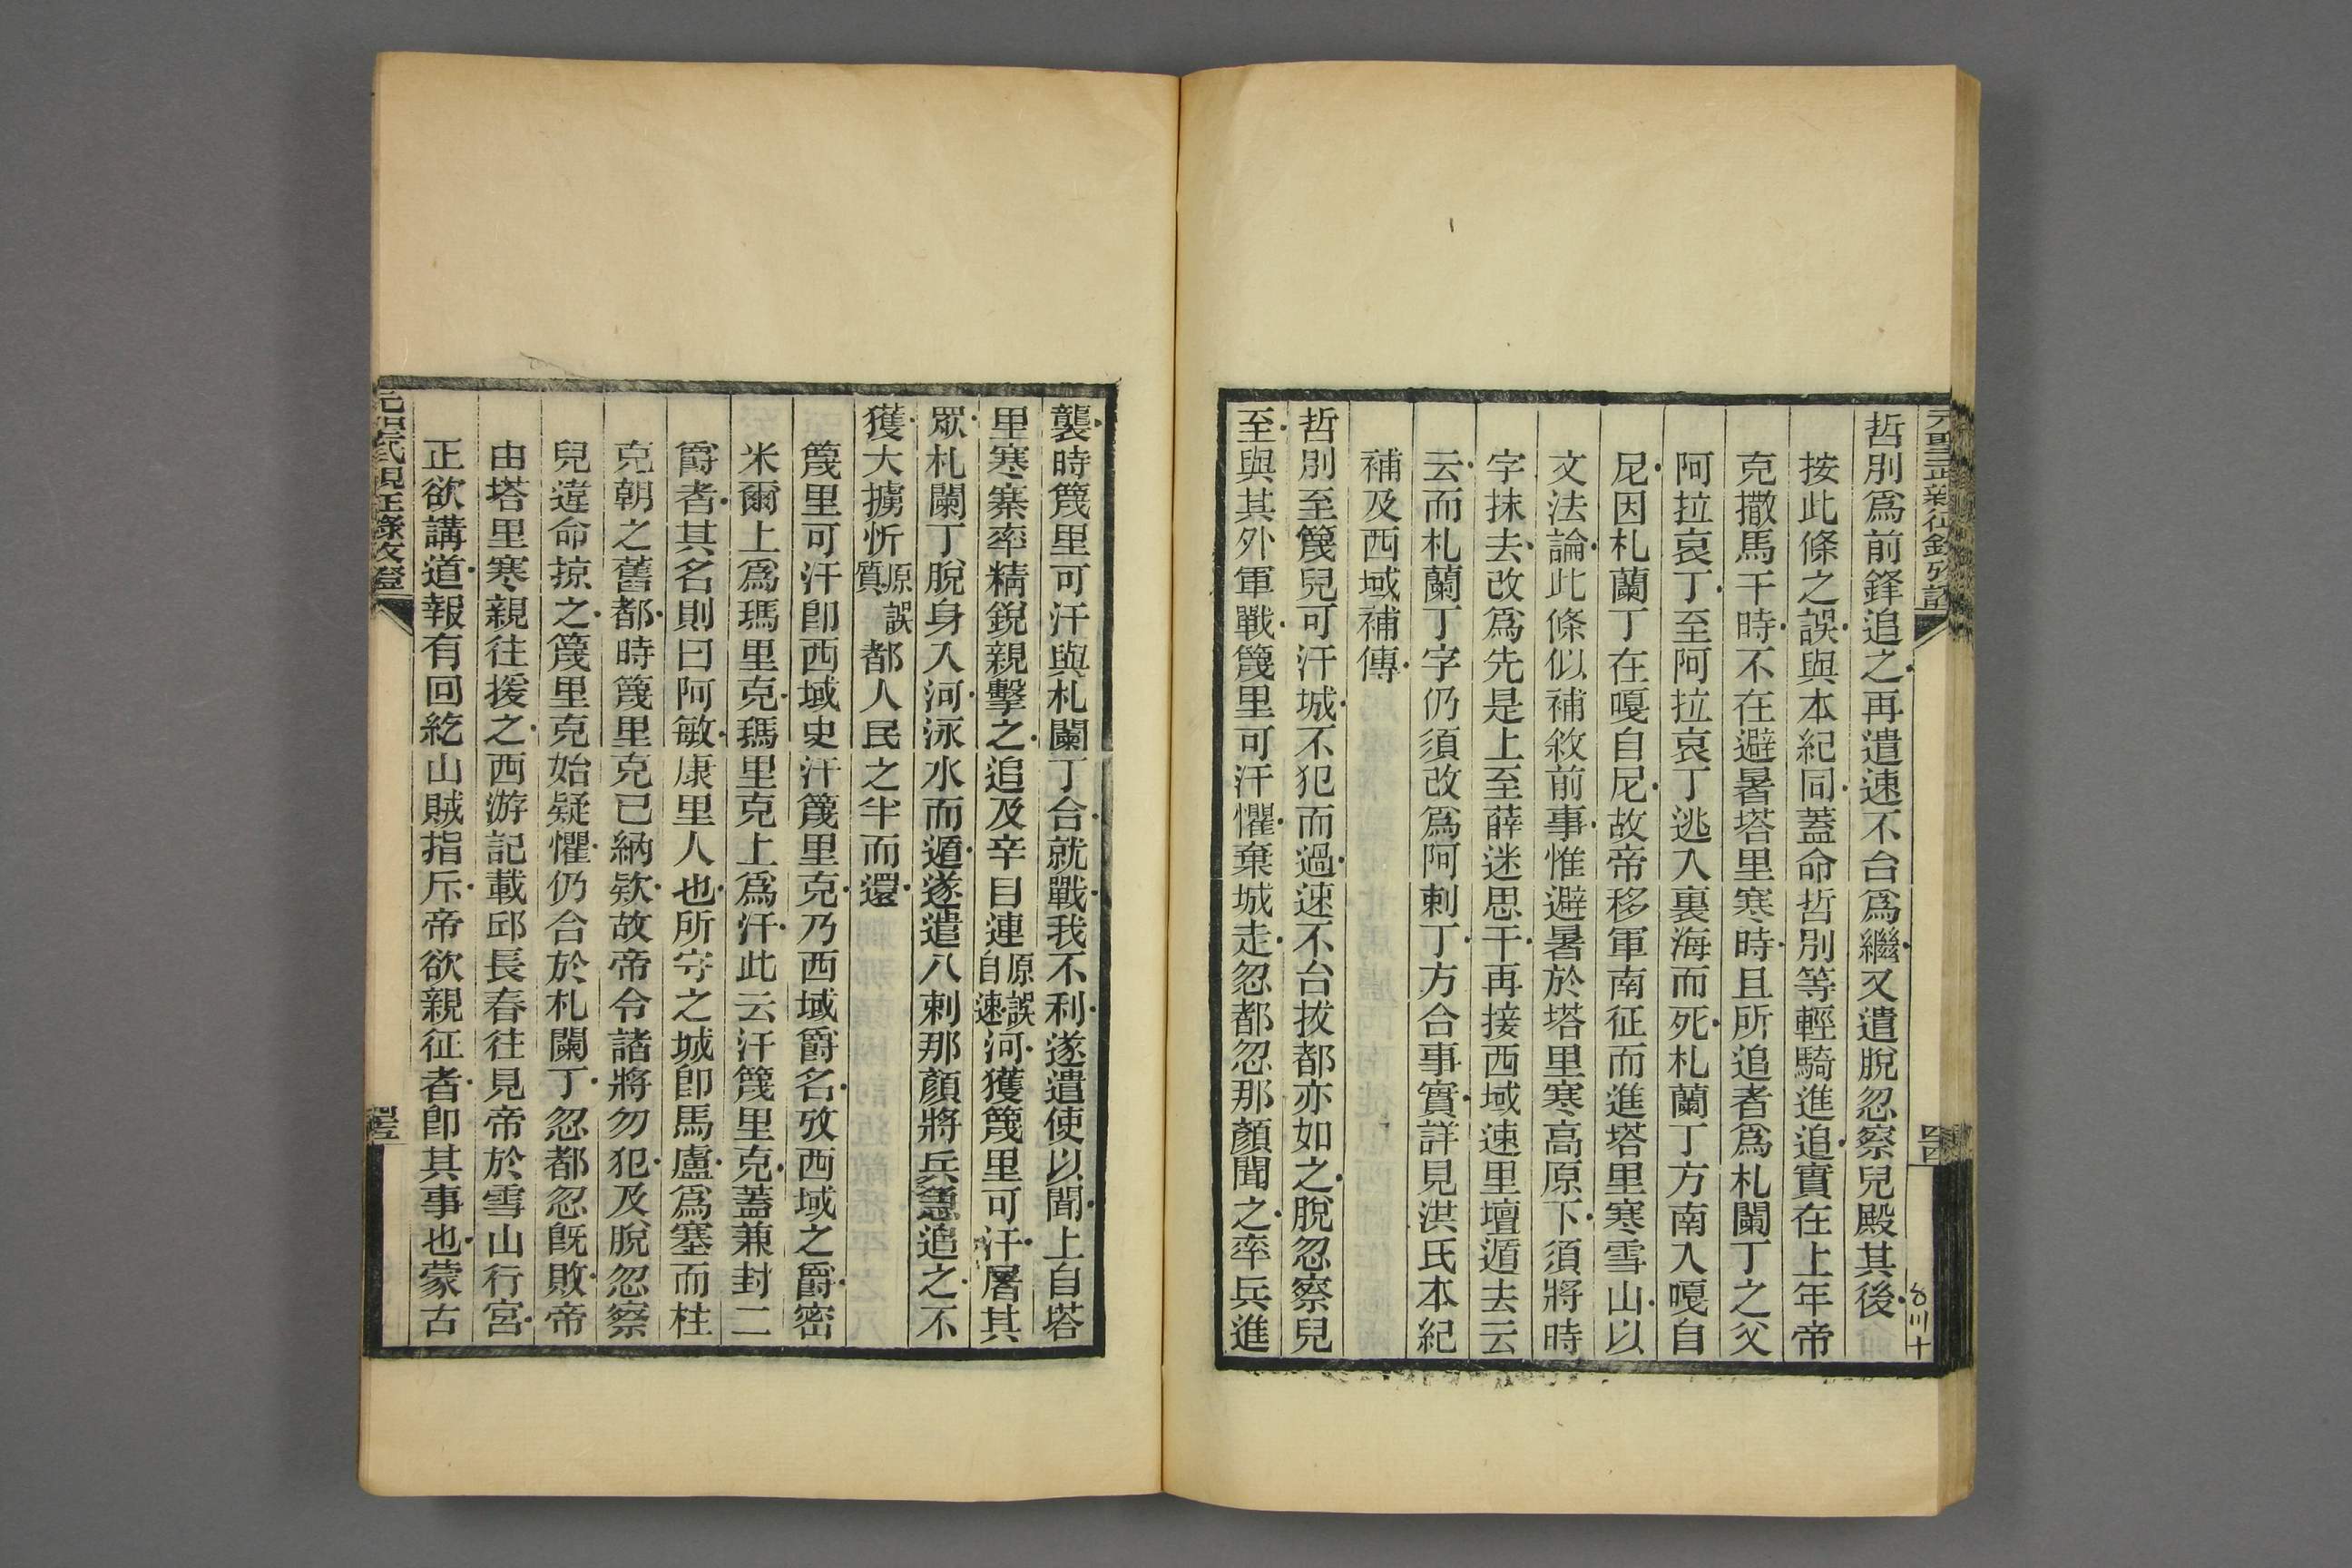 元聖武親征錄攷證
哲別爲前鋒追之再遣速不台爲繼又遣脫忽察兒殿其後
按此條之誤與本紀同蓋命哲別等輕騎進追實在上年帝
克撒馬干時不在避暑塔里寒時且所追者爲札闌丁之父
阿拉哀丁至阿拉哀丁逃入裏海而死札蘭丁方南入嘎自
尼因札蘭丁在嘎自尼故帝移軍南征而進塔里寒雪山以
文法論此條似補敘前事惟避暑於塔里寒高原下須將時
字抹去改爲先是上至薛迷思干再接西域速里壇遁去云
云而札蘭丁字仍須改爲阿剌丁方合事實詳見洪氏本紀
補及西域補傳
哲別至篾兒可汗城不犯而過速不台拔都亦如之脫忽察兒
至與其外軍戰篾里可汗懼棄城走忽都忽那顏聞之率兵進
襲時篾里可汗與札闌丁合就戰我不利遂遣使以聞上自塔
里寒寨率精銳親擊之追及辛目連原誤自速河獲篾里可汗屠其
眾札闌丁脫身入河泳水而遁遂遣八剌那顏將兵急追之不
獲大擄忻原誤質都人民之半而還
篾里可汗卽西域史汗篾里克乃西域爵名攷西域之爵密
米爾上爲瑪里克瑪里克上爲汗此云汗篾里克蓋兼封二
爵者其名則曰阿敏康里人也所守之城卽馬盧爲塞而柱
克朝之舊都時篾里克已納欵故帝令諸將勿犯及脫忽察
兒違命掠之篾里克始疑懼仍合於札闌丁忽都忽旣敗帝
由塔里寒親往援之西游記載邱長春往見帝於雪山行宮
正欲講道報有回紇山賊指斥帝欲親征者卽其事也蒙古